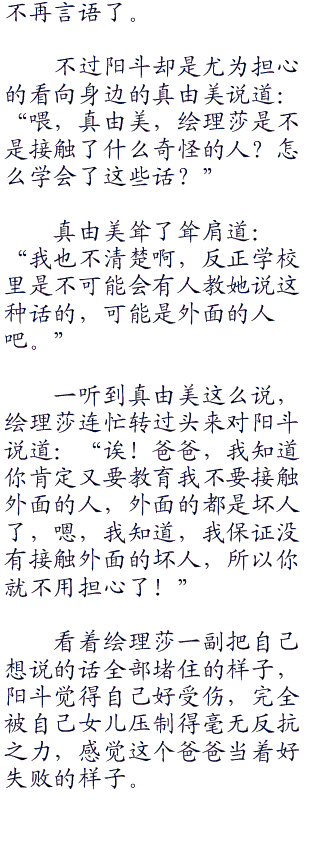 不再言语了。
不过阳斗却是尤为担心
的看向身边的真由美说道：
“喂，真由美，绘理莎是不
是接触了什么奇怪的人？怎
么学会了这些话？”
真由美耸了耸肩道：
“我也不清楚啊，反正学校
里是不可能会有人教她说这
种话的，可能是外面的人
吧。”
一听到真由美这么说，
绘理莎连忙转过头来对阳斗
说道：“诶！爸爸，我知道
你肯定又要教育我不要接触
外面的人，外面的都是坏人
了，嗯，我知道，我保证没
有接触外面的坏人，所以你
就不用担心了！”
看着绘理莎一副把自己
想说的话全部堵住的样子，
阳斗觉得自己好受伤，完全
被自己女儿压制得毫无反抗
之力，感觉这个爸爸当着好
失败的样子。